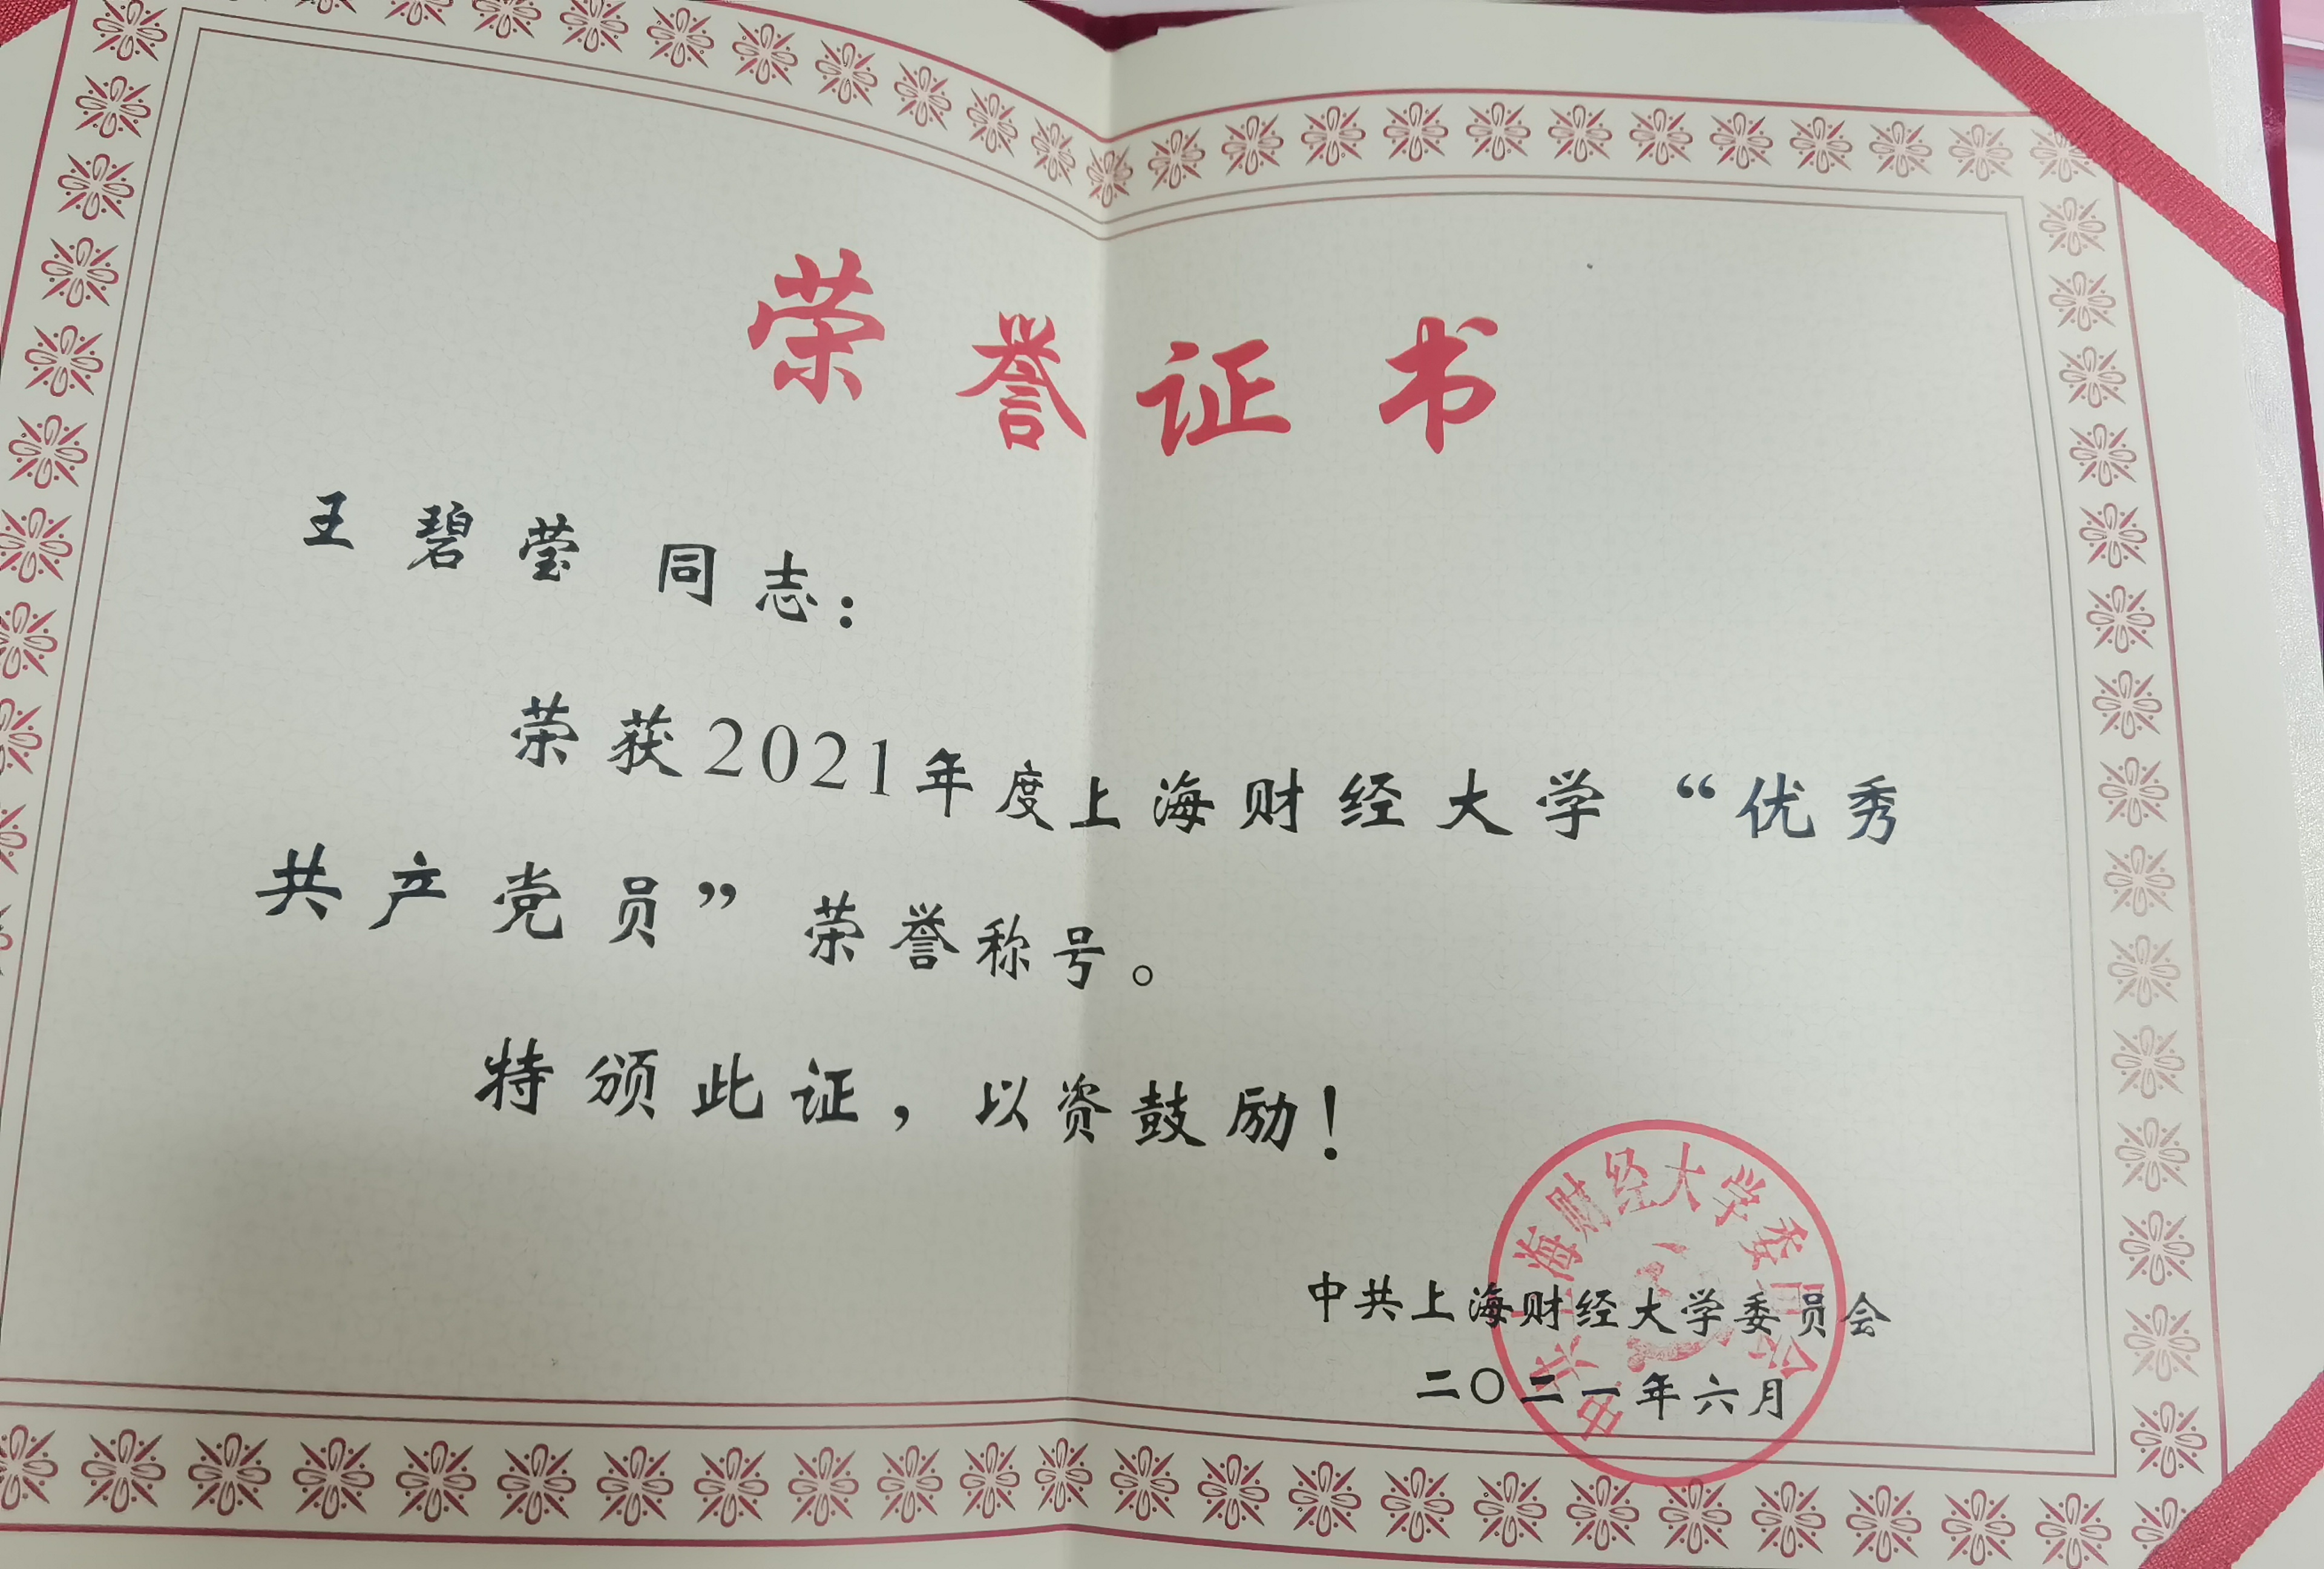 荣誉证书
王碧莹 同志：
荣获2021年度上海财经大学“优秀
共产党员”荣誉称号。
特颁此证，以资鼓励！
中共上海财经大学委员会
中共上海财经大学委员会
二〇二一年六月